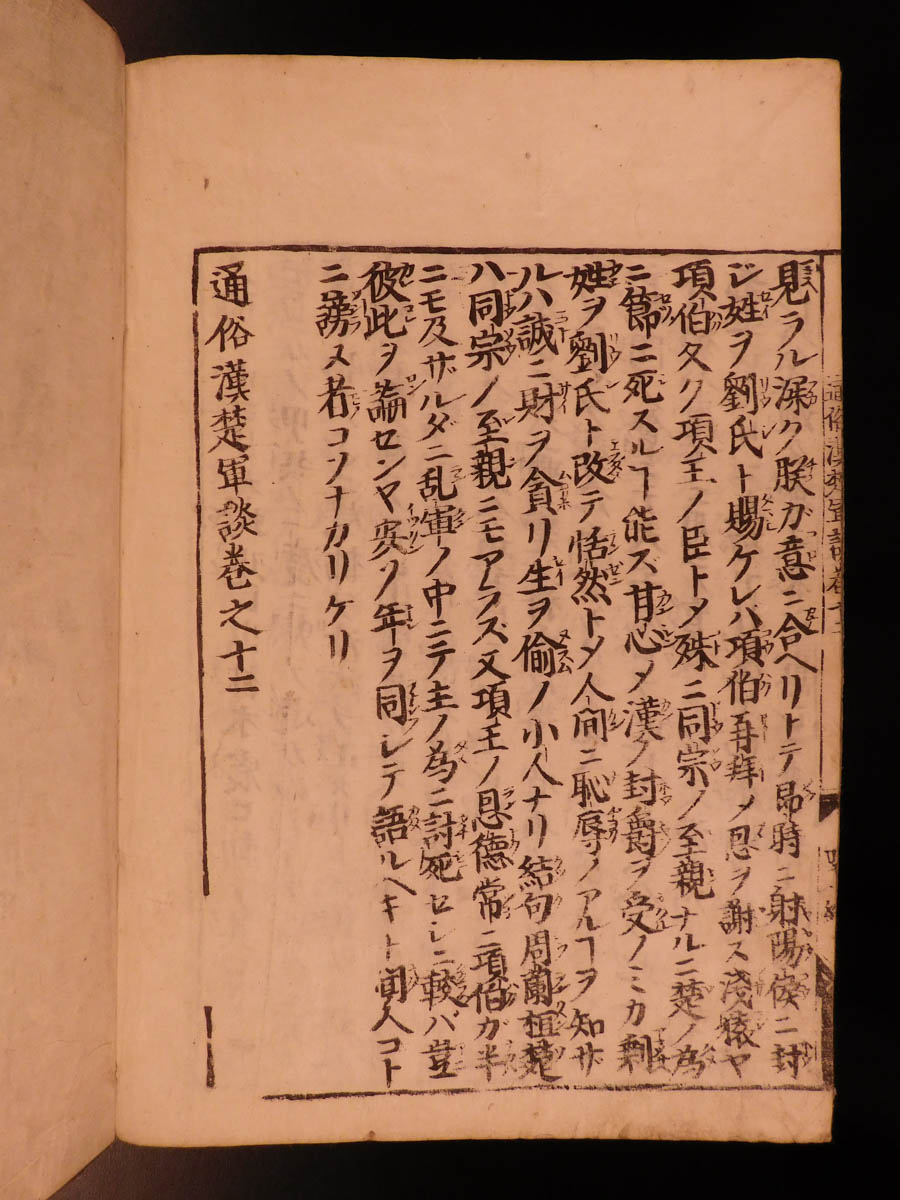 見ラル深ク朕ガ意ニ合ヘリトテ即時ニ射陽侯ニ封
ジ姓ヲ劉氏ト賜ケレバ項伯再拜メ恩ヲ謝ス淺猿ヤ
項伯久ク項王ノ臣トメ殊ニ同宗ノ至親ナルニ楚ノ為
ニ節ニ死スルヿ能ズ甘心メ漢ノ封爵ヲ受ノミカ剰
姓ヲ劉氏ト改テ恬然トメ人間ニ恥辱ノアルヿヲ知ザ
ルハ誠ニ財ヲ貪リ生ヲ偷ノ小人ナリ結句周蘭桓楚
ハ同宗ノ至親ニモアラズ又項王ノ恩德常ニ項伯ガ半
ニモ及ザルダニ乱軍ノ中ニテ主ノ為ニ討死セシニ較バ豈
彼此ヲ論センヤ安ソ年ヲ同シテ語ルヘキト聞人コト
ニ謗メ者コソナカリケリ
通俗漢楚軍談巻之十二